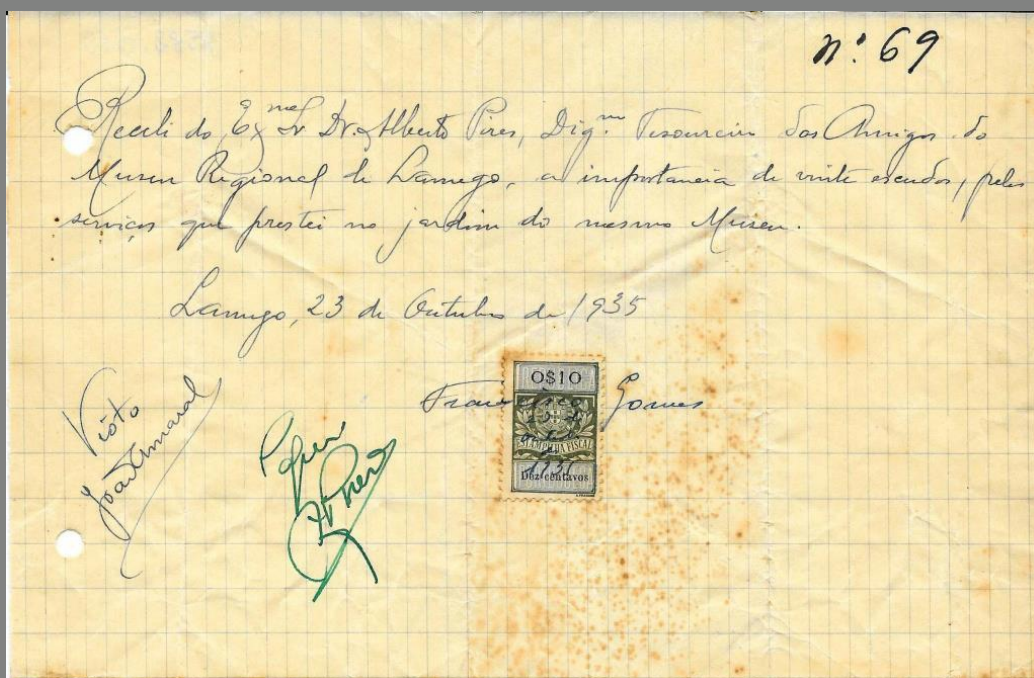 nº 69
Recebi do Exmo Sr. Dr. Alberto Pires, Dig.mo Tesoureiro dos Amigos do
Museu Regional de Lamego, a importancia de vinte escudos, pelos
serviços que prestei no jardim do mesmo Museu.
Lamego, 23 de Outubro de 1935
Francisco Gomes
0$10
ESTAMPILHA FISCAL
Dez centavos
Visto
João Amaral
Paguei
APires